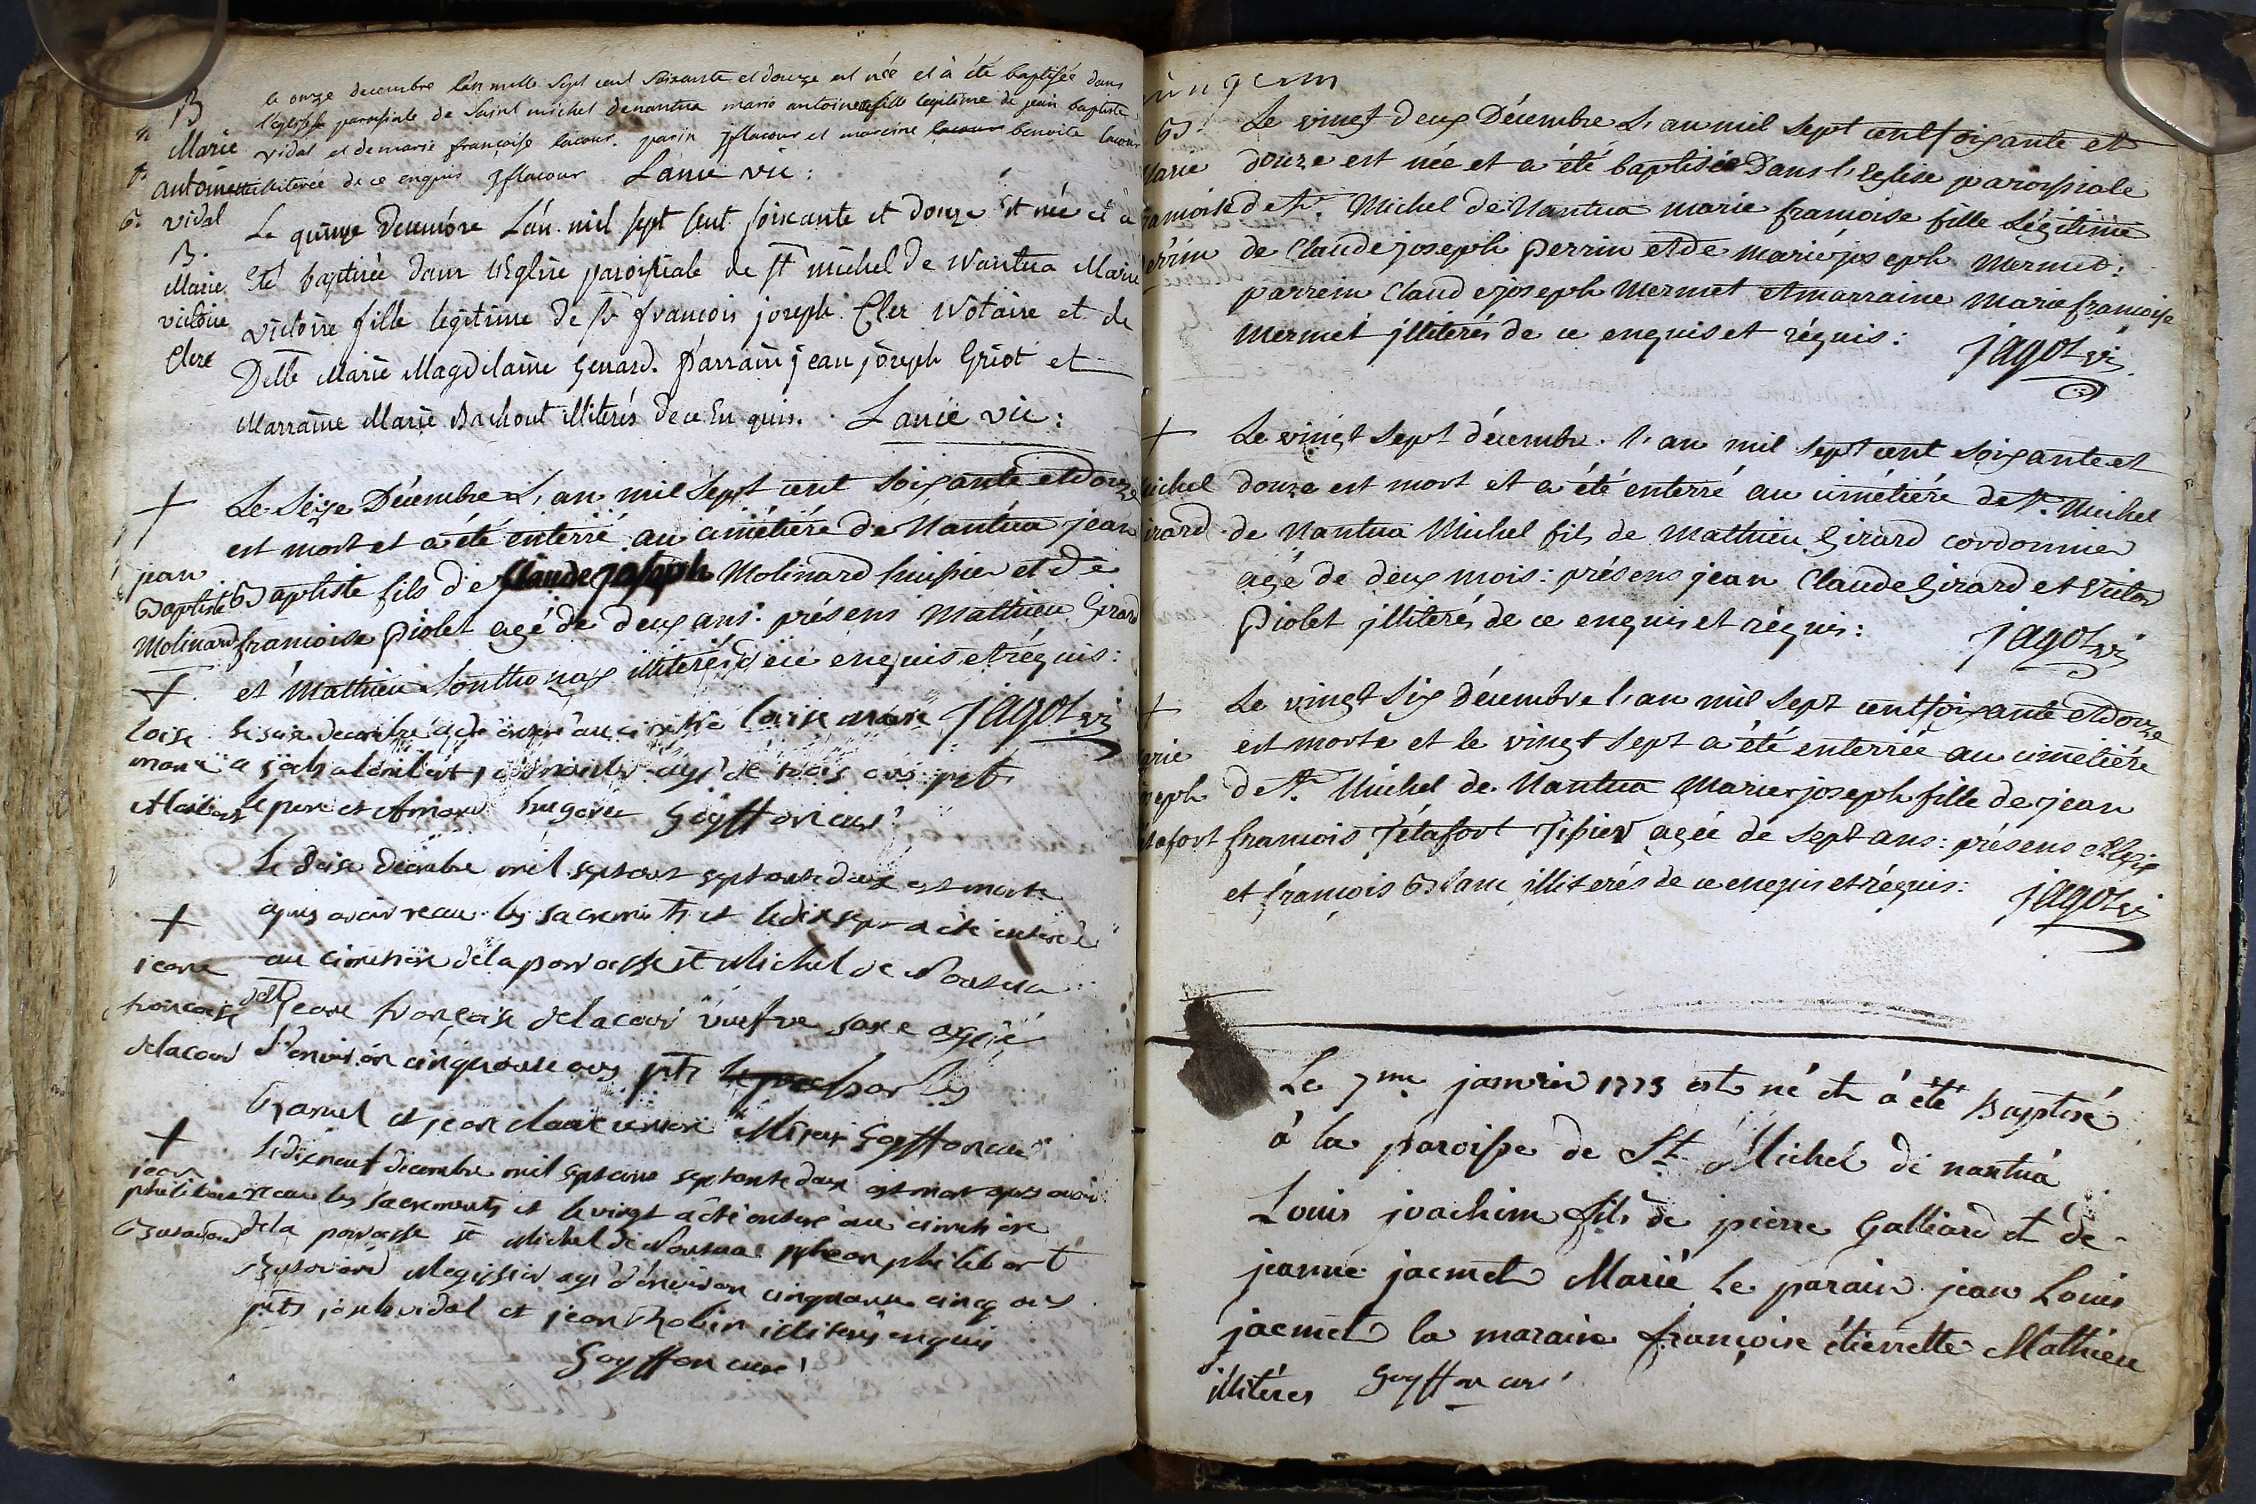 B
le onze decembre l'an mille sept cent soixante et douze est née et à été baptisée dans
l'eglise paroissiale de saint michel de nantua marie antoinette fille legitime de jean baptiste
Marie vidal et de marie françoise lacour. parin jflacour et mareine benoite lacour
antoinette illiterée de ce enquis jflacour Lanie vic:
vidal
Le quinze Decembre L'an mil sept cent soixante et douze est née et à
B.
Marie été baptisée dans l'Eglise paroissiale de St michel de Nantua Marie
victoire victoire fille legitime de Sr françois joseph Clerc Notaire et de
Clerc Delle Marie Magdelaine Genard. Parrain jean joseph Griot et
Marraine Marie Bachout illiterés de ce Enquis. Lanie vic:
+ Le Seize Décembre L'an mil Sept cent soixante et douze
est mort et a été enterré au cimétiére de Nantua jean
jean
Baptiste Baptiste fils de Claude joseph Molinard huissier et de
Molinard francoise Piolet agé de deux ans: présens Mathieu Girard
et Mathieu Sonthonax illiterés de ce enquis et réquis:
+ jagot vi
loise le seise decembre a été enteré au cimetiere loise marie
marie agé de trois ans pnts
le pere et hugonet Goyffon curé
Le seise decembre mil sept cent septante deux est morte
apres avoir receu les sacrements et le dix sept a été enterée
+ au cimetiere de la parroisse st Michel de Nantua
jeane
francoise jeane françoise delacour veufve agée
delacour d'environ cinquante ans pnts
et jean claude Goyffon curé
+ le dix neuf decembre mil sept cent septante deux est mort apres avoir
jean
philibert receu les sacrements et le vingt a été enteré au cimetiere
de la parroisse st Michel de Nantua jean philibert
Megissier agé d'environ cinquante cinq ans
pnts joseph vidal et jean Robin illiterés enquis
Goyffon curé
B. Le vingt deux Décembre L'an mil sept cent soixante et
Marie douze est née et a été baptisée Dans l'Eglise paroissiale
francoise de St. Michel de Nantua marie francoise fille Légitime
Perrin de Claude joseph Perrin et de marie joseph Mermet:
parrein Claude joseph Mermet et marraine Marie francoise
Mermet jlliterés de ce enquis et réquis: jagot vi.
+ Le vingt sept décembre l'an mil sept cent soixante et
Michel douze est mort et a été enterré au cimétiére de St. Michel
Girard de Nantua Michel fils de Mathieu Girard cordonnier
agé de deux mois: présens jean Claude Girard et Victor
Piolet jlliterés de ce enquis et réquis: jagot vi
+ Le vingt Six Décembre l'an mil sept cent soixante et douze
Marie est morte et le vingt sept a été enterrée au cimétiére
joseph de St. Michel de Nantua Marie joseph fille de jean
Tétafort francois Tétafort Tissier agée de sept ans: présens
et françois Blanc illiterés de ce enquis et réquis: jagot vi
Le 7me janvier 1773 est né et à été Baptisé
à la paroisse de St Michel de nantua
Louis joachim fils de pierre Galliard et de
jeanne jacmet Marié le parain jean Louis
jacmet la maraine françoise étiennette Mathieu
illiteres Goyffon curé